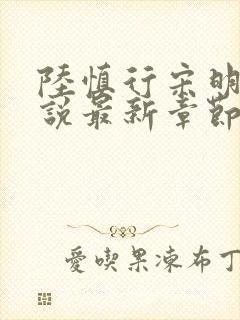 陸慎行宋明
說最新章節
愛喫果凍布丁